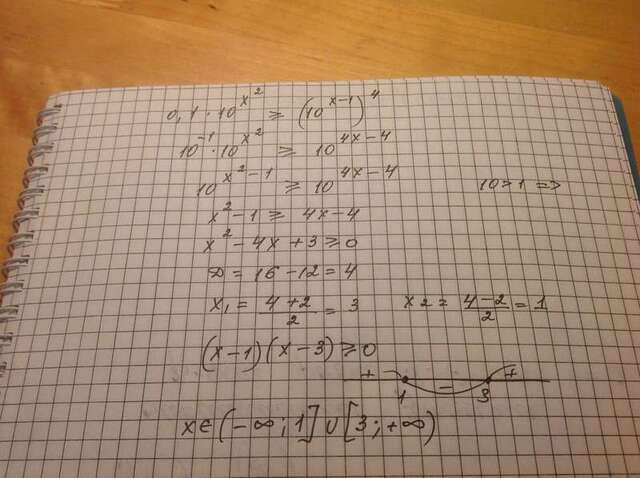 0,1 · 10^{x^2} ≥ (10^{x-1})^4
10^{-1} · 10^{x^2} ≥ 10^{4x-4}
10^{x^2-1} ≥ 10^{4x-4} 10 > 1 =>
x^2 - 1 ≥ 4x - 4
x^2 - 4x + 3 ≥ 0
D = 16 - 12 = 4
x_1 = \frac{4+2}{2} = 3 x_2 = \frac{4-2}{2} = 1
(x-1)(x-3) ≥ 0
+ - +
1 3
x ∈ (-∞; 1] ∪ [3; +∞)